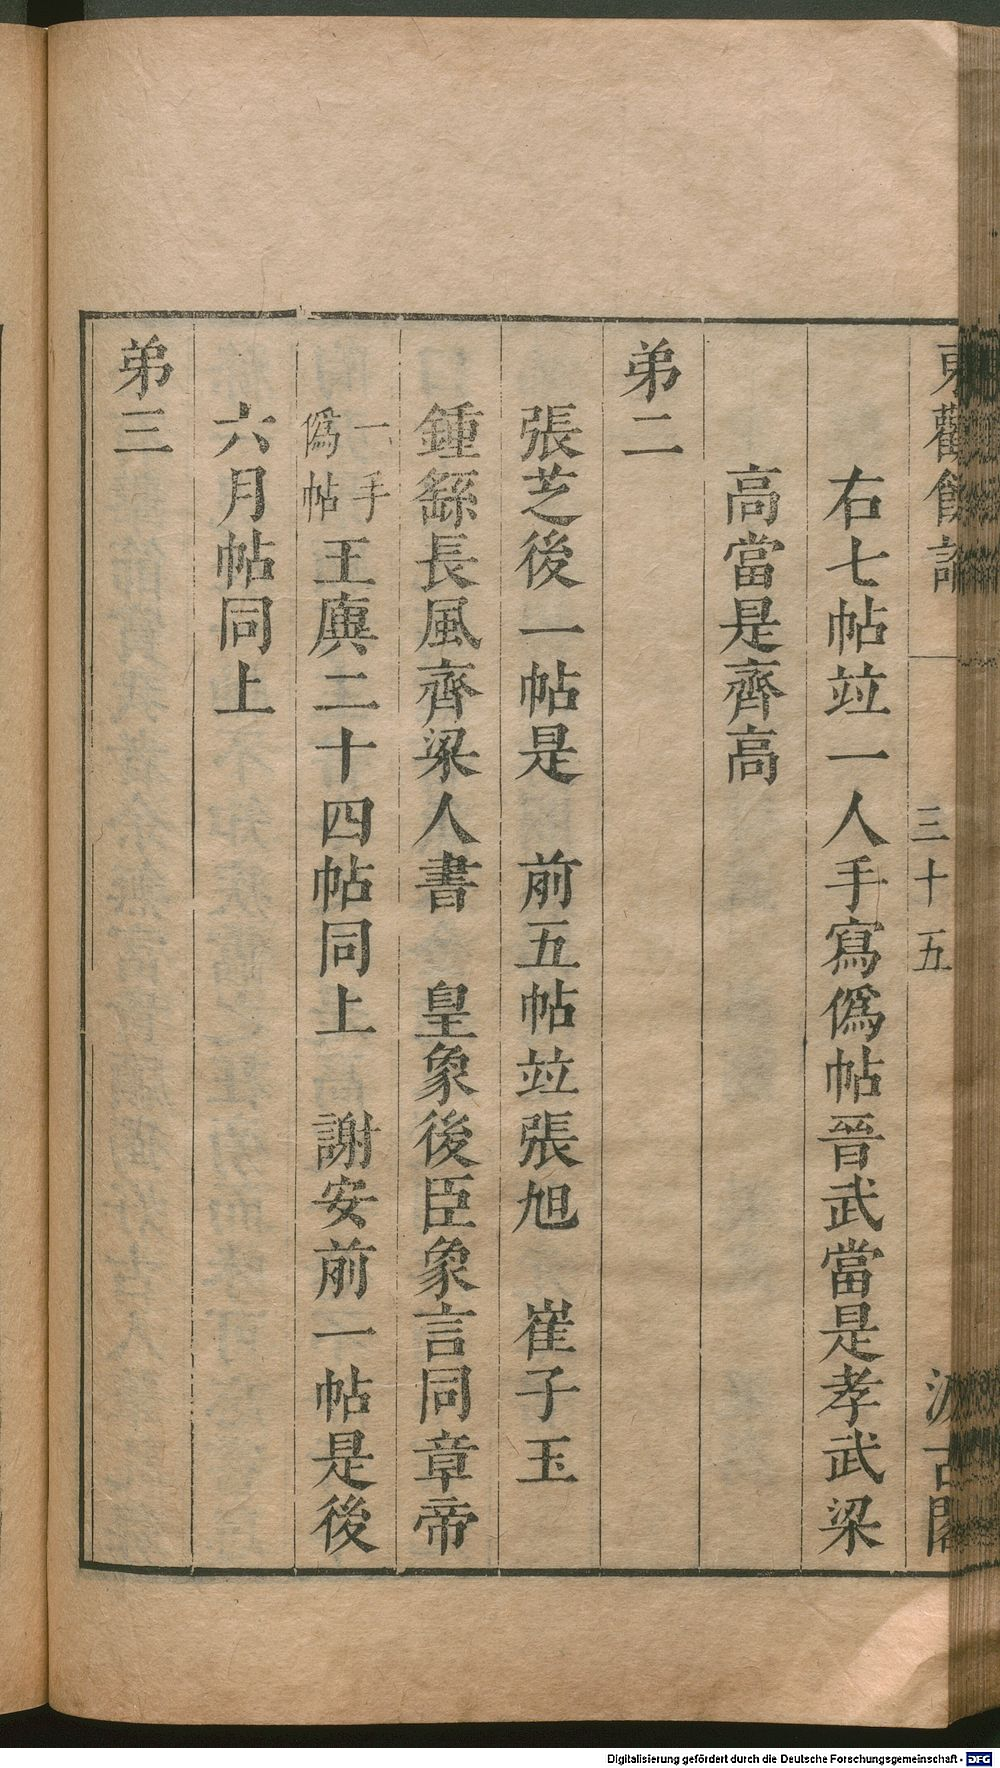 東觀餘論 三十五 汲古閣
右七帖竝一人手寫僞帖晉武當是孝武梁
高當是齊高
弟二
張芝後一帖是　前五帖竝張旭　崔子玉
鍾繇長風齊梁人書　皇象後臣象言同章帝
一手僞帖王廙二十四帖同上　謝安前一帖是後
六月帖同上
弟三
Digitalisierung gefördert durch die Deutsche Forschungsgemeinschaft - DFG